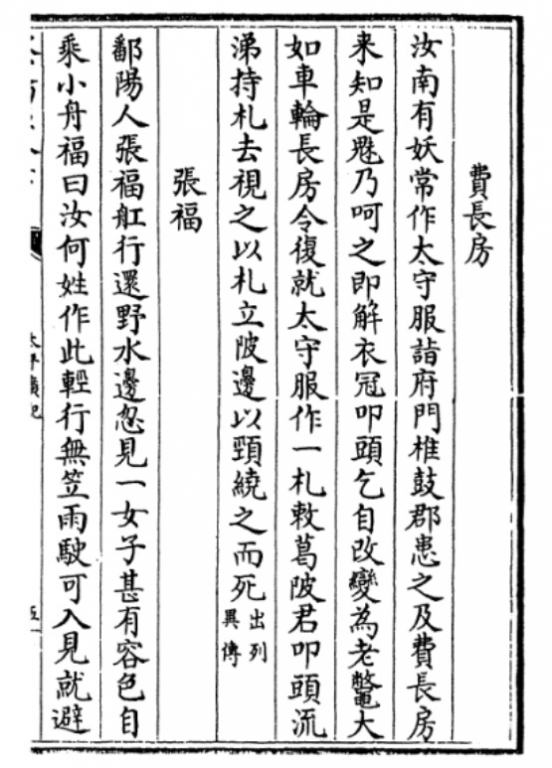 費長房
汝南有妖常作太守服詣府門椎鼓郡患之及費長房
来知是魅乃呵之即解衣冠叩頭乞自改變為老鼈大
如車輪長房令復就太守服作一札敕葛陂君叩頭流
涕持札去視之以札立陂邊以頸繞之而死出列異傳
張福
鄱陽人張福舡行還野水邊忽見一女子甚有容色自
乘小舟福曰汝何姓作此輕行無笠雨駛可入見就避
太平廣記
五